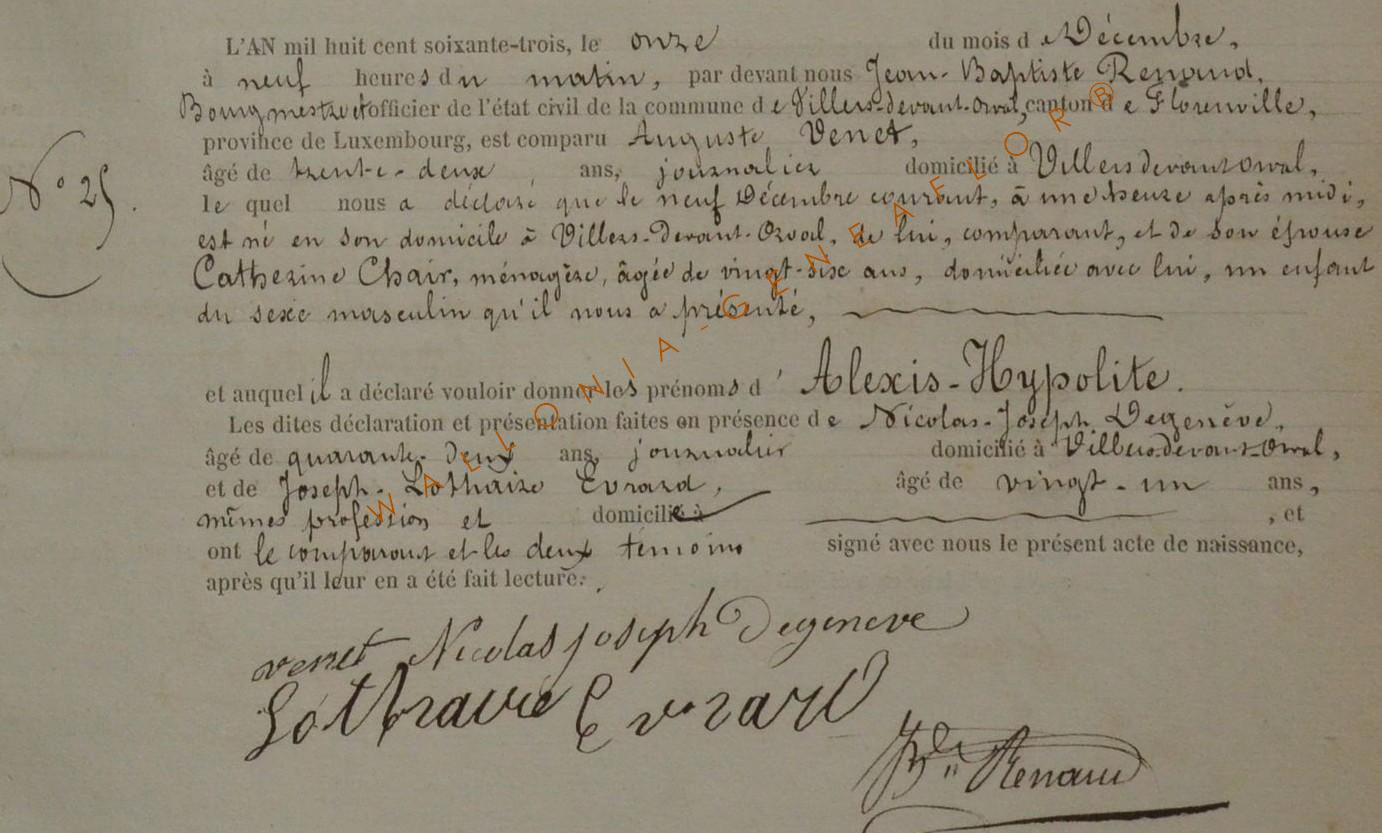 L'AN mil huit cent soixante-trois, le onze du mois de Décembre,
à neuf heures du matin, par devant nous Jean-Baptiste Renaud,
Bourgmestre et officier de l'état civil de la commune de Villers-devant-orval, canton de Florenville,
province de Luxembourg, est comparu Auguste Venet,
âgé de trente-deux ans, journalier domicilié à Villers devant orval,
N° 25.
le quel nous a déclaré que le neuf Décembre courant, à une heure après midi,
est né en son domicile à Villers-Devant-Orval, de lui, comparant, et de son épouse
Catherine Chair, ménagère, âgée de vingt-six ans, domiciliée avec lui, un enfant
du sexe masculin qu'il nous a présenté,
et auquel il a déclaré vouloir donner les prénoms d'Alexis-Hypolite.
Les dites déclaration et présentation faites en présence de Nicolas-Joseph Degenève,
âgé de quarante-deux ans, journalier domicilié à Villers-devant-Orval,
et de Joseph-Lothaire Evrard, âgé de vingt-un ans,
mêmes profession et domicilié à , et
ont le comparant et les deux témoins signé avec nous le présent acte de naissance,
après qu'il leur en a été fait lecture.
venet Nicolas joseph Degeneve
Lothraire Evrard
Renaud
WALLONIA-GENEAFLOR®